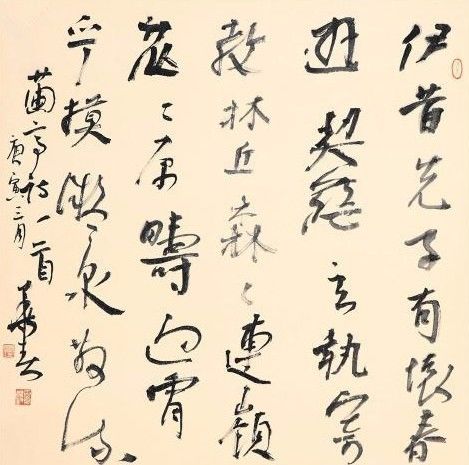 伊昔先子有懷春
遊契茲言執寄
敖林丘森〻連嶺
茫〻原疇迥霄
垂凝泉散流
蘭亭詩一首
庚寅三月